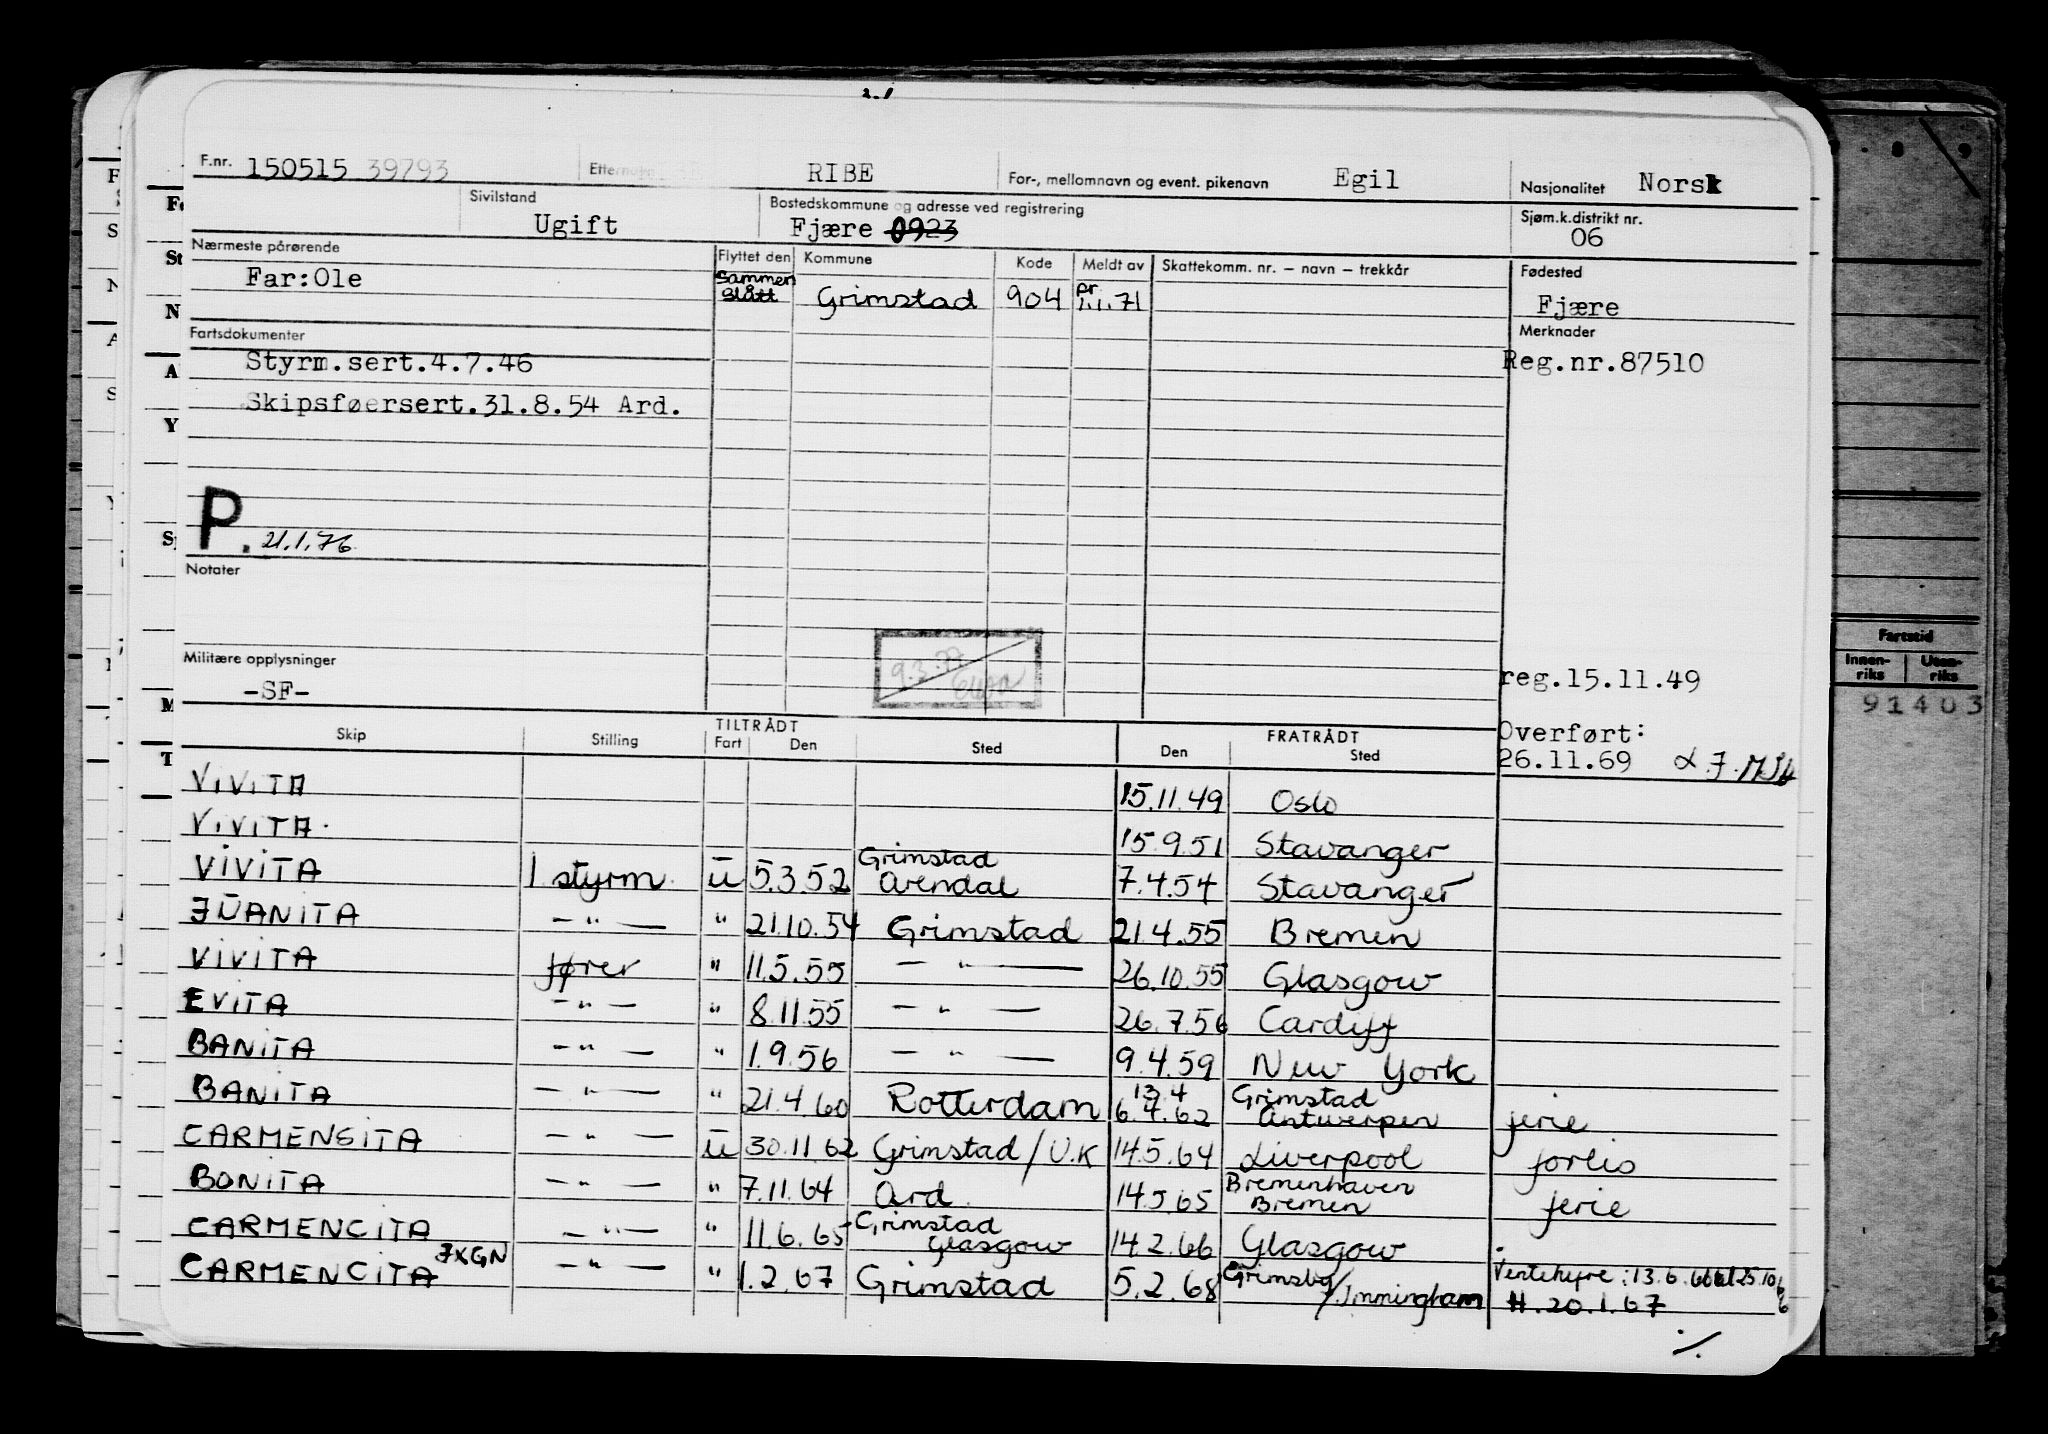 F.nr. 150515 39793 RIBE For-, mellomnavn og event. pikenavn Egil Nasjonalitet Norsk
Sivilstand Ugift Bostedskommune og adresse ved registrering Fjære 0923 Sjøm.k.distrikt nr. 06
Nærmeste pårørende Flyttet den Kommune Kode Meldt av Skattekomm. nr. – navn – trekkår Fødested
Far:Ole Sammen slått Grimstad 904 pr. 1.1.71 Fjære
Fartsdokumenter Merknader
Styrm.sert.4.7.46 Reg.nr.87510
Skipsføersert.31.8.54 Ard.
P. 21.1.76
Notater
Militære opplysninger
-SF- reg.15.11.49
9.3.77
TILTRÅDT FRATRÅDT Overført:
Skip Stilling Fart Den Sted Den Sted 26.11.69
VIVITA 15.11.49 Oslo
VIVITA. 15.9.51 Stavanger
VIVITA 1 styrm. u 5.3.52 Grimstad Arendal 7.4.54 Stavanger
JUANITA — " — " 21.10.54 Grimstad 21.4.55 Bremen
VIVITA fører " 11.5.55 — " — 26.10.55 Glasgow
EVITA — " — " 8.11.55 — " — 26.7.56 Cardiff
BANITA — " — " 1.9.56 — " — 9.4.59 New York
BANITA — " — " 21.4.60 Rotterdam 13.4 6.4.62 Grimstad Antwerpen ferie
CARMENSITA — " — u 30.11.62 Grimstad / U.K 14.5.64 Liverpool forlis
BONITA — " — " 7.11.64 Ard. 14.5.65 Bremenhaven Bremen ferie
CARMENCITA — " — " 11.6.65 Grimstad Glasgow 14.2.66 Glasgow
CARMENCITA JXGN — " — " 1.2.67 Grimstad 5.2.68 Grimsby / Immingham Ventehyre: 13.6.66 til 25.10.66
H. 20.1.67
./.
Fartstid
Innen-riks Uten-riks
91403